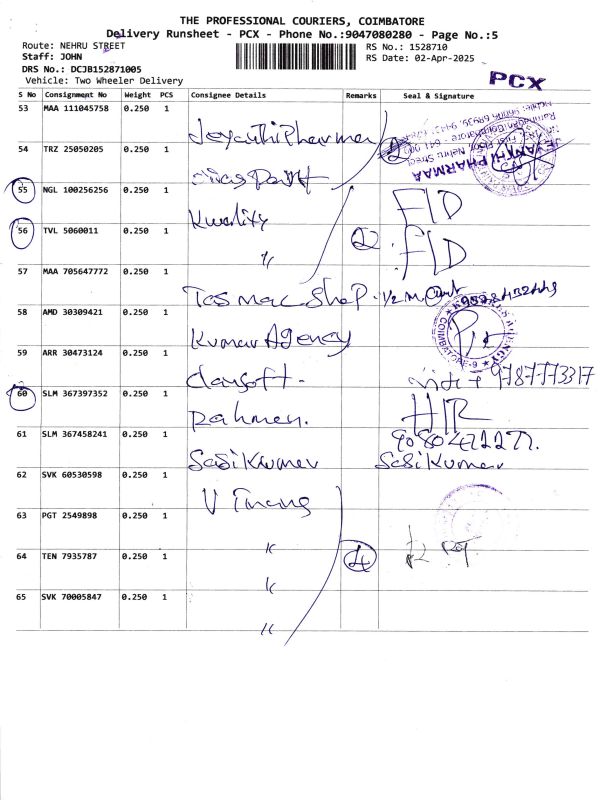 THE PROFESSIONAL COURIERS, COIMBATORE
Delivery Runsheet - PCX - Phone No.:9047080280 - Page No.:5
Route: NEHRU STREET
RS No.: 1528710
Staff: JOHN
RS Date: 02-Apr-2025
DRS No.: DCJB152871005
Vehicle: Two Wheeler Delivery
PCX
S No Consignment No Weight PCS Consignee Details Remarks Seal & Signature
53 MAA 111045758 0.250 1 Jeyanthi Pharmaa
JEYANTHI PHARMAA
54 TRZ 25050205 0.250 1
2
55 NGL 100256256 0.250 1 Kwality FID
56 TVL 5060011 0.250 1 〃 2 FID
57 MAA 705647772 0.250 1 Tasmac Shop
58 AMD 30309421 0.250 1 Kumar Agency
COIMBATORE-9
59 ARR 30473124 0.250 1 9787773317
60 SLM 367397352 0.250 1 Rahmen. HIR
61 SLM 367458241 0.250 1 Sasikumar 9080472277.
Sasikumar
62 SVK 60530598 0.250 1
63 PGT 2549898 0.250 1 〃
64 TEN 7935787 0.250 1 〃 4
65 SVK 70005847 0.250 1 〃